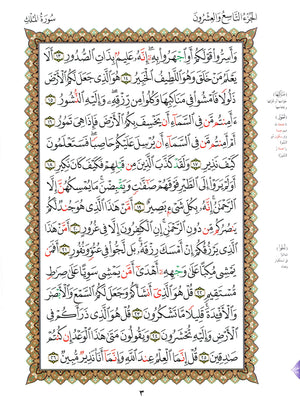 الجزء التاسع والعشرون
سورة الملك
وَأَسِرُّوا۟ قَوْلَكُمْ أَوِ ٱجْهَرُوا۟ بِهِۦٓ إِنَّهُۥ عَلِيمٌۢ بِذَاتِ ٱلصُّدُورِ ١٣ أَلَا
يَعْلَمُ مَنْ خَلَقَ وَهُوَ ٱللَّطِيفُ ٱلْخَبِيرُ ١٤ هُوَ ٱلَّذِى جَعَلَ لَكُمُ ٱلْأَرْضَ
ذَلُولًا فَٱمْشُوا۟ فِى مَنَاكِبِهَا وَكُلُوا۟ مِن رِّزْقِهِۦ وَإِلَيْهِ ٱلنُّشُورُ ١٥
ءَأَمِنتُم مَّن فِى ٱلسَّمَآءِ أَن يَخْسِفَ بِكُمُ ٱلْأَرْضَ فَإِذَا هِىَ تَمُورُ ١٦
أَمْ أَمِنتُم مَّن فِى ٱلسَّمَآءِ أَن يُرْسِلَ عَلَيْكُمْ حَاصِبًا فَسَتَعْلَمُونَ
كَيْفَ نَذِيرِ ١٧ وَلَقَدْ كَذَّبَ ٱلَّذِينَ مِن قَبْلِهِمْ فَكَيْفَ كَانَ نَكِيرِ ١٨
أَوَلَمْ يَرَوْا۟ إِلَى ٱلطَّيْرِ فَوْقَهُمْ صَٰٓفَّٰتٍ وَيَقْبِضْنَ مَا يُمْسِكُهُنَّ إِلَّا
ٱلرَّحْمَٰنُ إِنَّهُۥ بِكُلِّ شَىْءٍۭ بَصِيرٌ ١٩ أَمَّنْ هَٰذَا ٱلَّذِى هُوَ جُندٌ لَّكُمْ
يَنصُرُكُم مِّن دُونِ ٱلرَّحْمَٰنِ إِنِ ٱلْكَٰفِرُونَ إِلَّا فِى غُرُورٍ ٢٠ أَمَّنْ هَٰذَا
ٱلَّذِى يَرْزُقُكُمْ إِنْ أَمْسَكَ رِزْقَهُۥ بَل لَّجُّوا۟ فِى عُتُوٍّ وَنُفُورٍ ٢١ أَفَمَن
يَمْشِى مُكِبًّا عَلَىٰ وَجْهِهِۦٓ أَهْدَىٰٓ أَمَّن يَمْشِى سَوِيًّا عَلَىٰ صِرَٰطٍ
مُّسْتَقِيمٍ ٢٢ قُلْ هُوَ ٱلَّذِىٓ أَنشَأَكُمْ وَجَعَلَ لَكُمُ ٱلسَّمْعَ وَٱلْأَبْصَٰرَ
وَٱلْأَفْـِٔدَةَ قَلِيلًا مَّا تَشْكُرُونَ ٢٣ قُلْ هُوَ ٱلَّذِى ذَرَأَكُمْ فِى
ٱلْأَرْضِ وَإِلَيْهِ تُحْشَرُونَ ٢٤ وَيَقُولُونَ مَتَىٰ هَٰذَا ٱلْوَعْدُ إِن كُنتُمْ
صَٰدِقِينَ ٢٥ قُلْ إِنَّمَا ٱلْعِلْمُ عِندَ ٱللَّهِ وَإِنَّمَآ أَنَا۠ نَذِيرٌ مُّبِينٌ ٢٦
٣